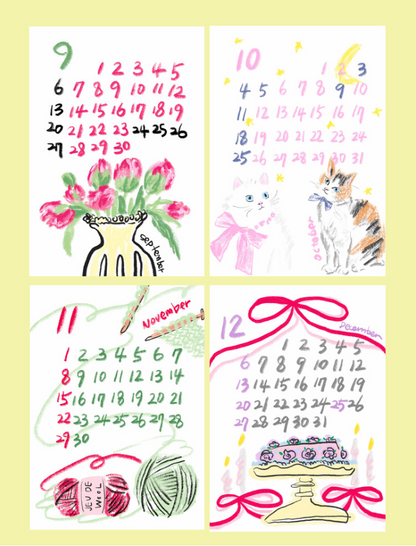 9
1 2 3 4 5
6 7 8 9 10 11 12
13 14 15 16 17 18 19
20 21 22 23 24 25 26
27 28 29 30
September
10
1 2 3
4 5 6 7 8 9 10
11 12 13 14 15 16 17
18 19 20 21 22 23 24
25 26 27 28 29 30 31
October
11
November
1 2 3 4 5 6 7
8 9 10 11 12 13 14
15 16 17 18 19 20 21
22 23 24 25 26 27 28
29 30
JEU DE
WOOL
12
December
1 2 3 4 5
6 7 8 9 10 11 12
13 14 15 16 17 18 19
20 21 22 23 24 25 26
27 28 29 30 31